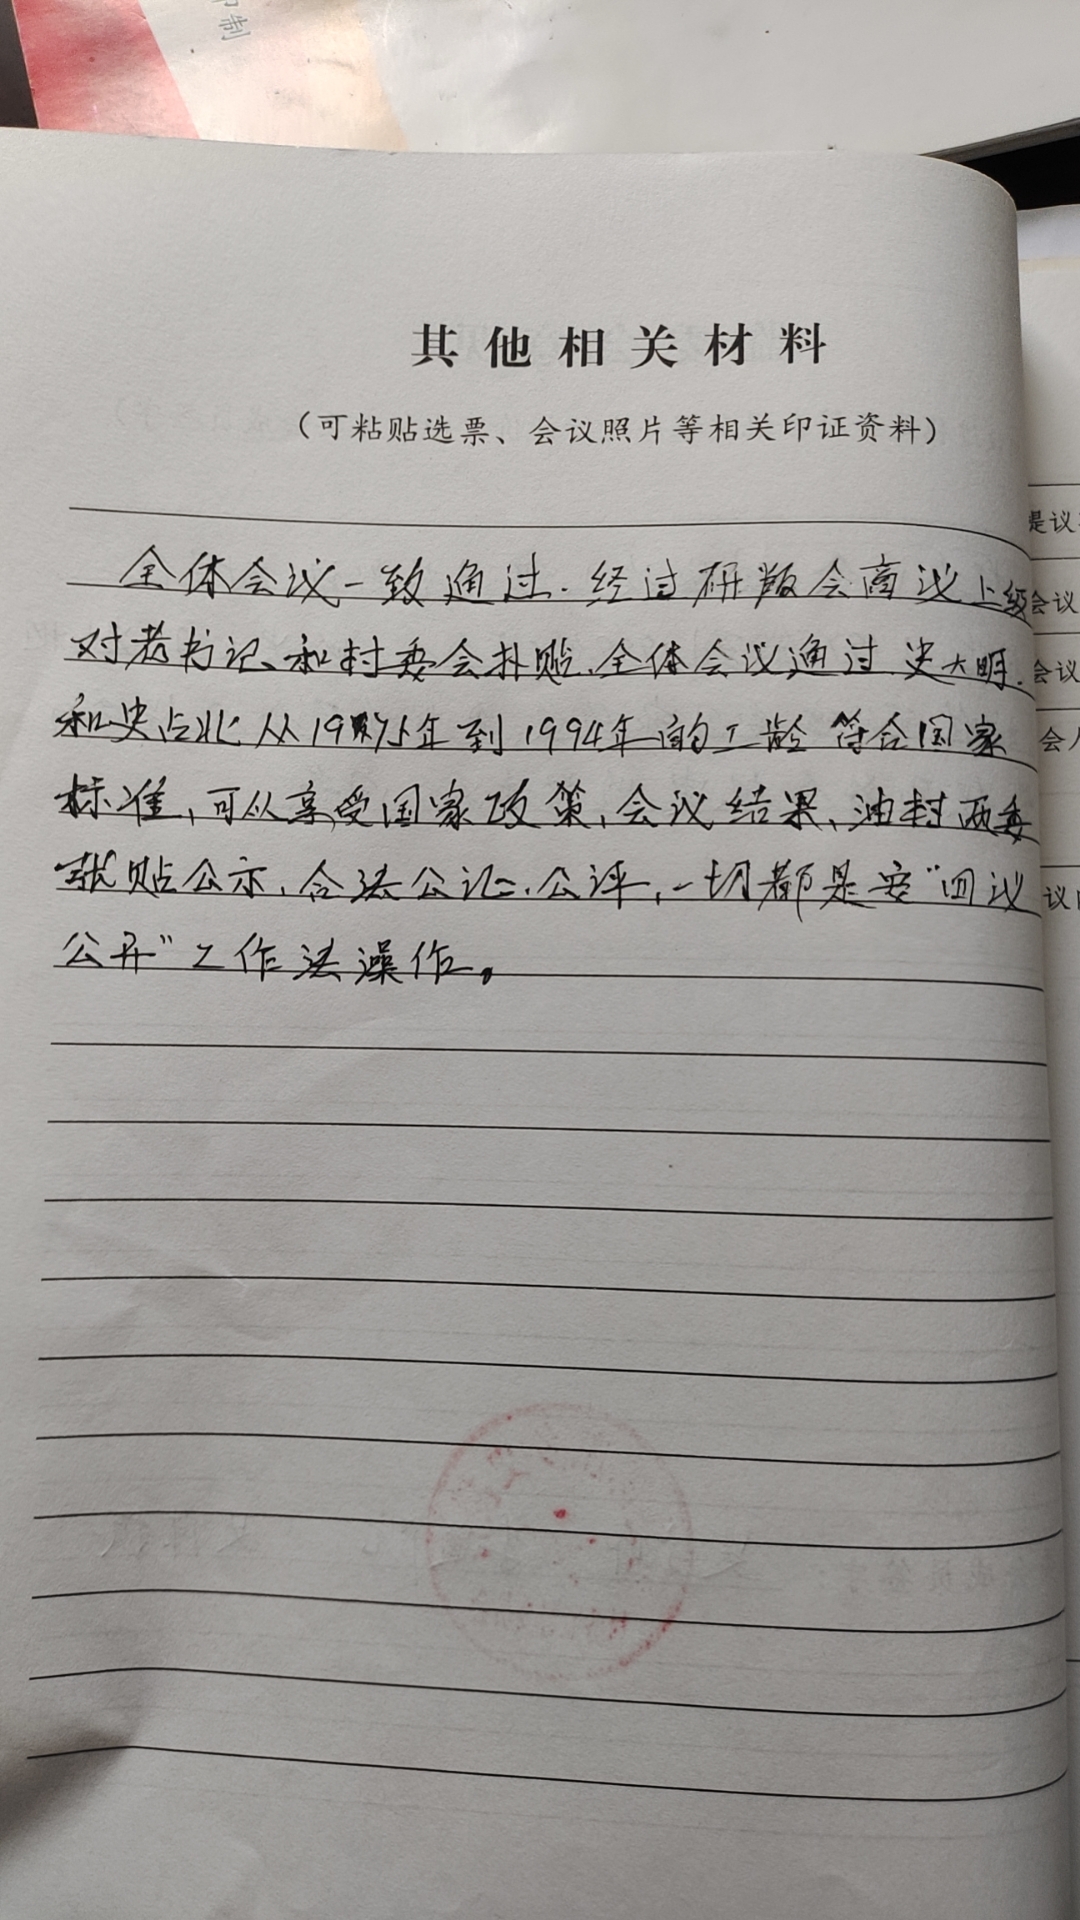 印制
其他相关材料
（可粘贴选票、会议照片等相关印证资料）
全体会议一致通过.经过研版会商议上级
对老书记、和村委会扑贴.全体会议通过.史大明.
和史占北从19年到1994年的工龄符合国家
标准,可从享受国家政策,会议结果,油村两委
张贴公示,合法公证,公评,一切都是安“四议
公开”工作法澡作。
是议
会议
会议
会
议
成员签字：